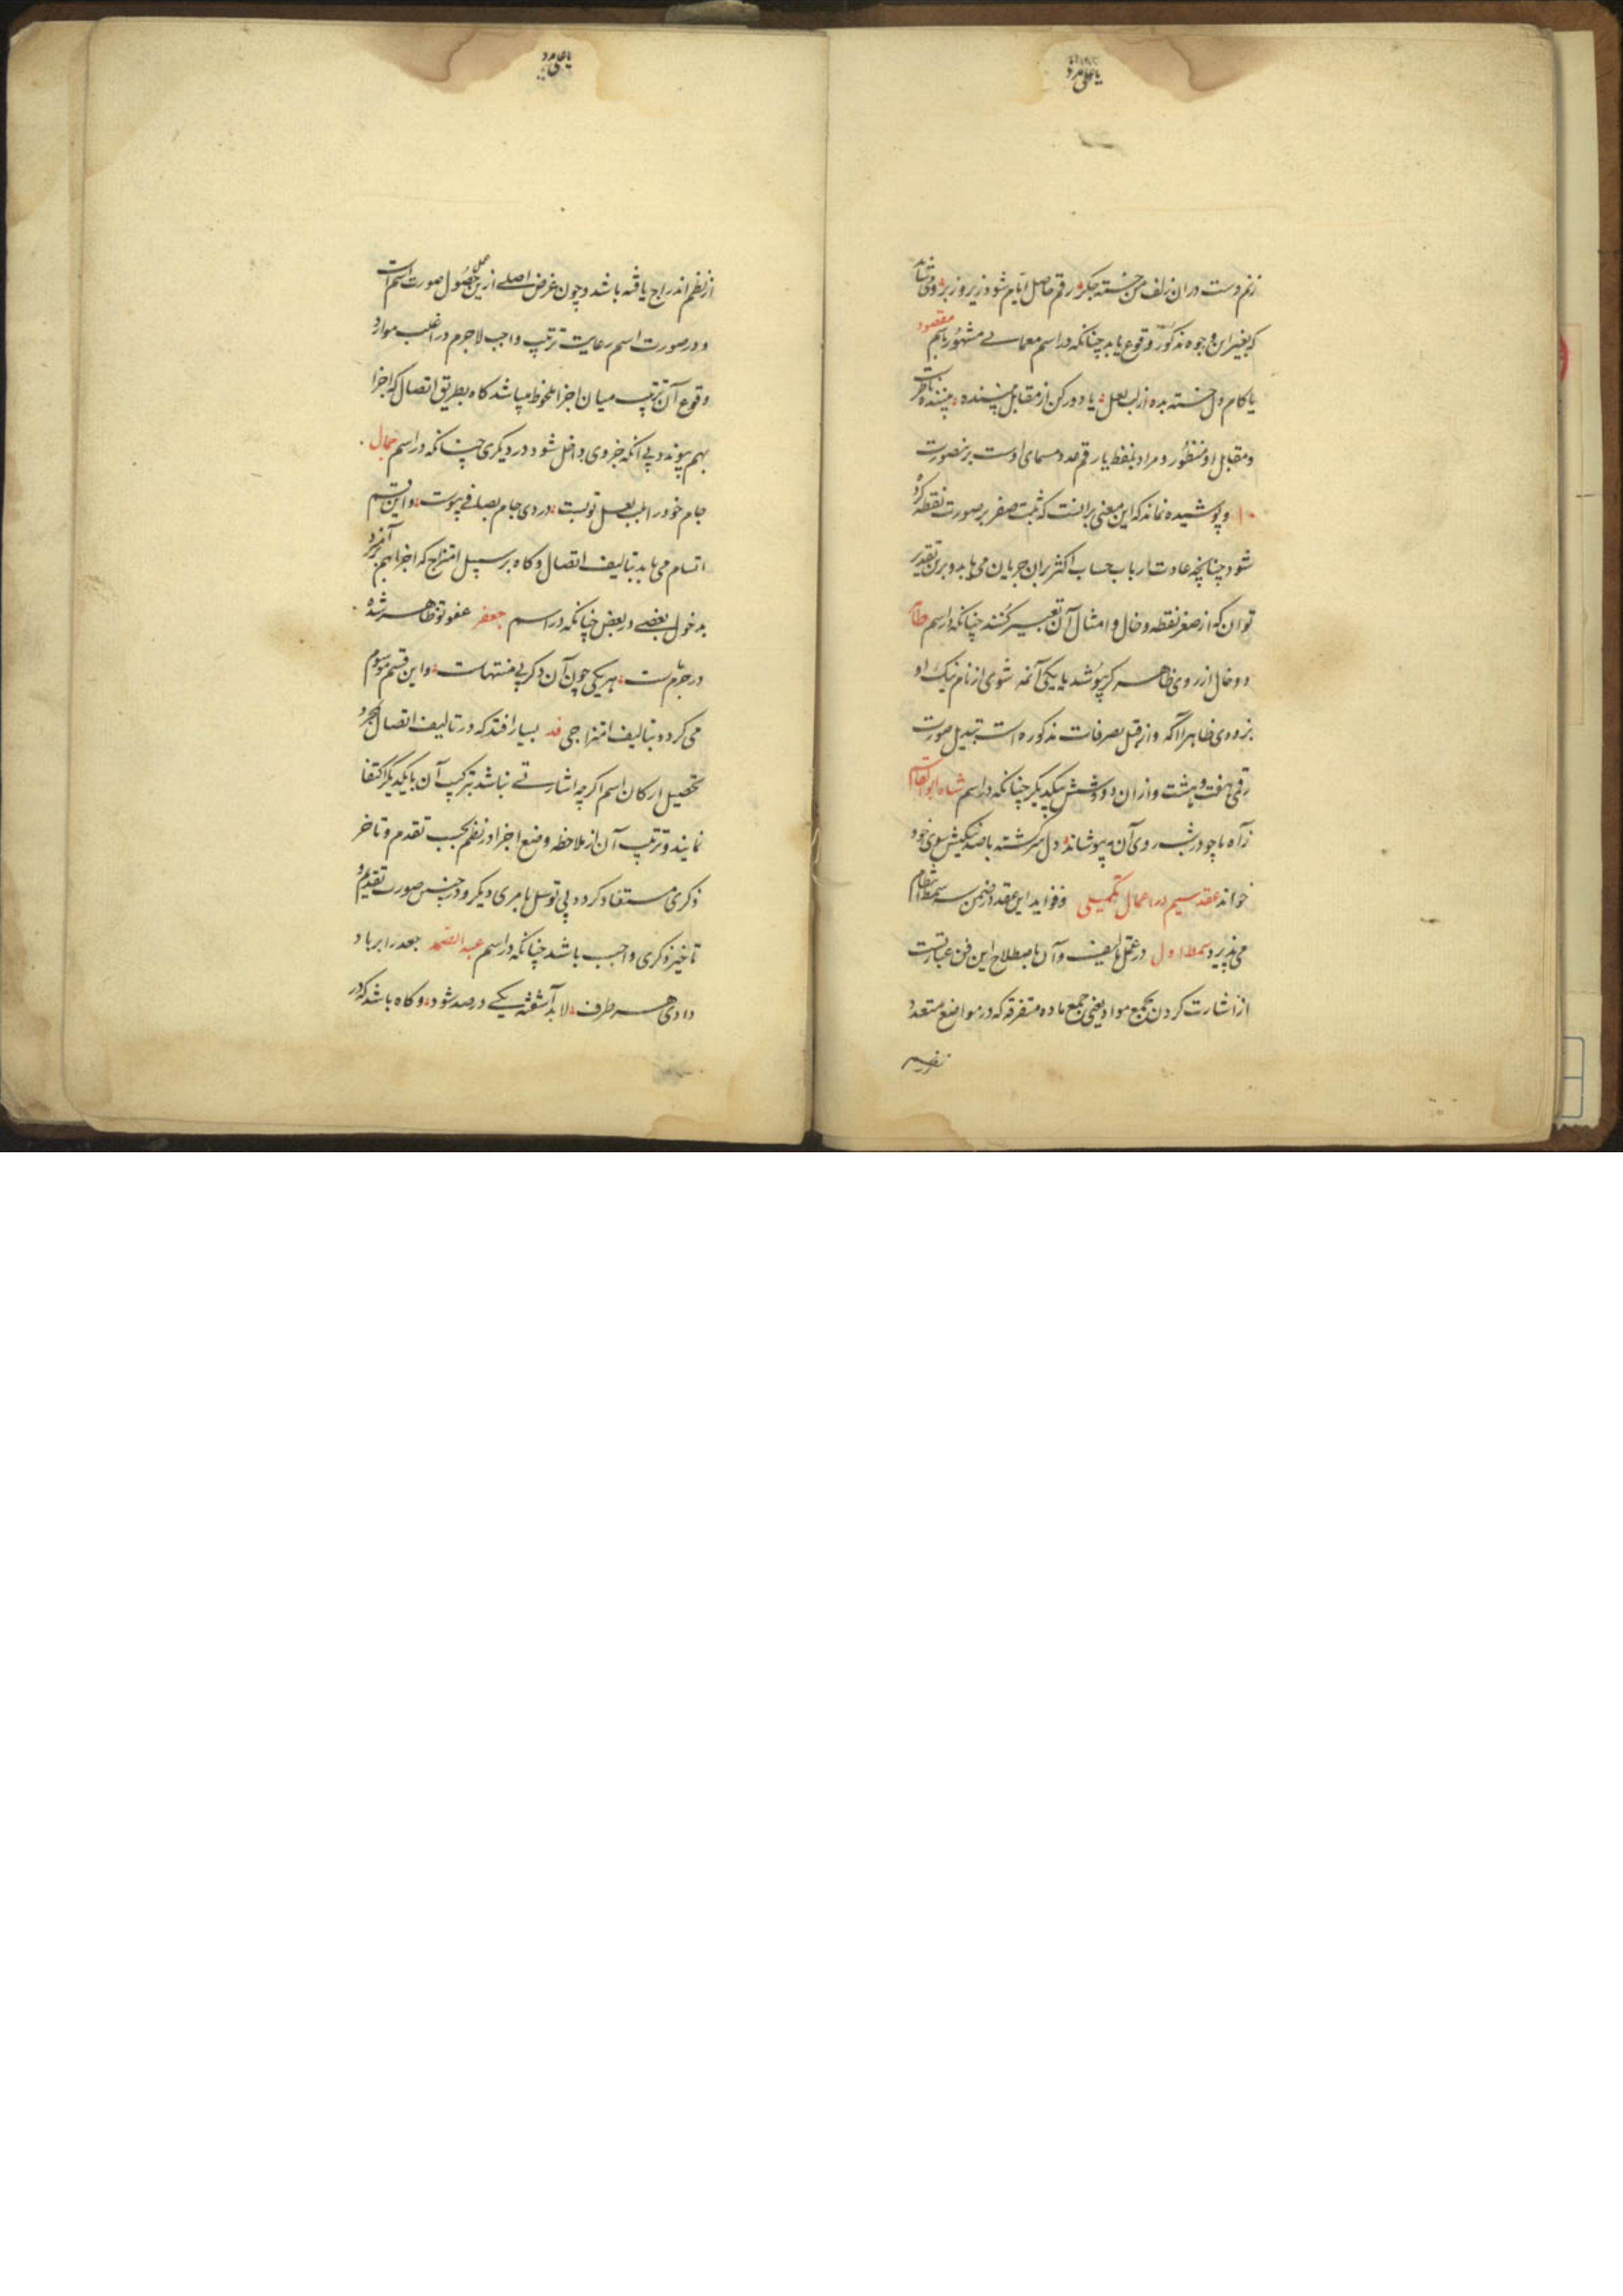 یا علی مدد
زنم دست در ان زلف من خسته جکر رقم حاصل ایام شود زیر و زبر و می شاید
که بغیر این وجوه مذکوره وقوع یابد چنانکه در اسم معمای مشهور باسم مقصود
یا کام دل خسته بده از لب لعل یا دور کن از مقابل بیننده بیننده ناظر است
و مقابل او منظور و مراد بنقط یا رقم عدد مسمای اوست برینصورت
۱۰ و پوشیده نماند که این معنی برانست که مثبت صفر بر صورت نقطه کرد
شود چنانچه عادت ارباب حساب اکثر بران جریان می یابد و برین تقدیر
توان که از صفر نقطه و خال و امثال آن تعبیر کنند چنانکه در اسم
دو خال از روی ظاهر کر بپوشد یا یکی آنمه شوی از نام نیک او
بزودی ظاهرا آکه و از قبل تصرفات مذکوره است تبدیل صورت
رقمی هفت و هشت و از ان دو و شش بیکدیکر چنانکه در اسم شاه ابو القاسم
ز آه ما چو در شب روی آن مه بپوشاند دل سرکشته باصد نیکیش سوی خود
خواند عقد سیم در اعمال تکمیلی و فواید این عقد در ضمن سه سمط انتظام
می پذیرد سمط اول در عمل تالیف و آن باصطلاح این فن عبارتست
از اشارت کردن بجمع مواد یعنی جمع ماده متفرقه که در مواضع متعدد
یا علی مدد
از نظم اندراج یافته باشد و چون غرض اصلی ازین عمل حصول صورت اسم است
و در صورت اسم رعایت ترتیب واجب لاجرم در اغلب موارد
وقوع آن ترتیب میان اجزا ملحوظ میباشد کاه بطریق اتصال که اجزا
بهم پیوندد بی آنکه جزوی داخل شود در دیکری چنانکه در اسم جمال
جام خود را لب بلعل تو بست دردی جام بصافی پیوست و این قسم
اتسام می یابد بتالیف اتصال و کاه بر سبیل امتزاج که اجزا بهم بر آمیزد
بدخول بعضی در بعض چنانکه در اسم جعفر عفو تو ظاهر شده
در جرم ست هر یکی چون آن دکر بی منتهاست و این قسم موسوم
می کردد بتالیف امتزاجی فد بسیار افتد که در تالیف اتصال بمجرد
تحصیل ارکان اسم اکرچه اشارتی نباشد بترکیب آن با یکدیکر اکتفا
نمایند و ترتیب آن از ملاحظه وضع اجزا در نظم بحسب تقدم و تاخر
ذکری مستفاد کردد بی توسل بامری دیکر و در جنس صورت تقدیم و
تاخیر ذکری واجب باشد چنانکه در اسم عبد الصمد جعد را بر باد
دادی هر طرف لا بد آشفته یکی در صد شود و کاه باشد که در